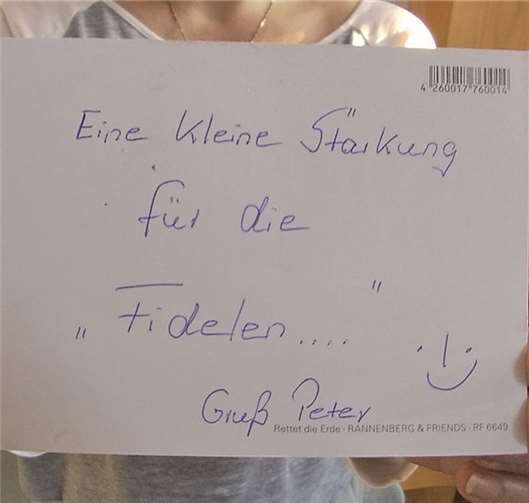 4 260017 760014
Eine kleine Stärkung
für die
„Fidelen...."
Gruß Peter
Rettet die Erde · RANNENBERG & FRIENDS · RF 6649